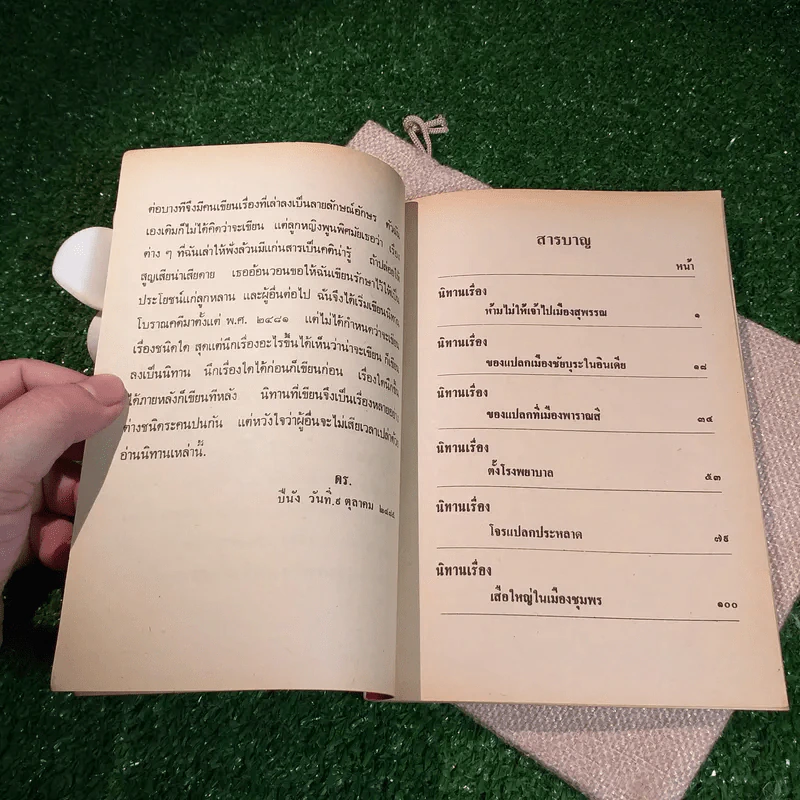 ต่อบางทีจึงมีคนเขียนเรื่องที่เล่าลงเป็นลายลักษณ์อักษร
เองเดิมก็ไม่ได้คิดว่าจะเขียน แต่ลูกหญิงพูนพิศมัยเธอว่า
ต่าง ๆ ที่ฉันเล่าให้ฟังล้วนมีแก่นสารเป็นคติน่ารู้
สูญเสียน่าเสียดาย เธออ้อนวอนขอให้ฉันเขียนรักษาไว้ให้เป็น
ประโยชน์แก่ลูกหลาน และผู้อื่นต่อไป ฉันจึงได้เริ่มเขียนนิทาน
โบราณคดีมาตั้งแต่ พ.ศ. ๒๔๘๑ แต่ไม่ได้กำหนดว่าจะเขียน
เรื่องชนิดใด สุดแต่นึกเรื่องอะไรขึ้นได้เห็นว่าน่าจะเขียน ก็เขียน
ลงเป็นนิทาน นึกเรื่องใดได้ก่อนก็เขียนก่อน เรื่องใดนึกขึ้น
ได้ภายหลังก็เขียนทีหลัง นิทานที่เขียนจึงเป็นเรื่องหลายอย่าง
ต่างชนิดระคนปนกัน แต่หวังใจว่าผู้อื่นจะไม่เสียเวลาเปล่า
อ่านนิทานเหล่านี้.
ดร.
ปีนัง วันที่ ๙ ตุลาคม
สารบาญ
หน้า
นิทานเรื่อง
ห้ามไม่ให้เจ้าไปเมืองสุพรรณ ๑
นิทานเรื่อง
ของแปลกเมืองชัยบุระในอินเดีย ๑๘
นิทานเรื่อง
ของแปลกที่เมืองพาราณสี ๓๔
นิทานเรื่อง
ตั้งโรงพยาบาล ๕๓
นิทานเรื่อง
โจรแปลกประหลาด ๗๙
นิทานเรื่อง
เสือใหญ่ในเมืองชุมพร ๑๐๐